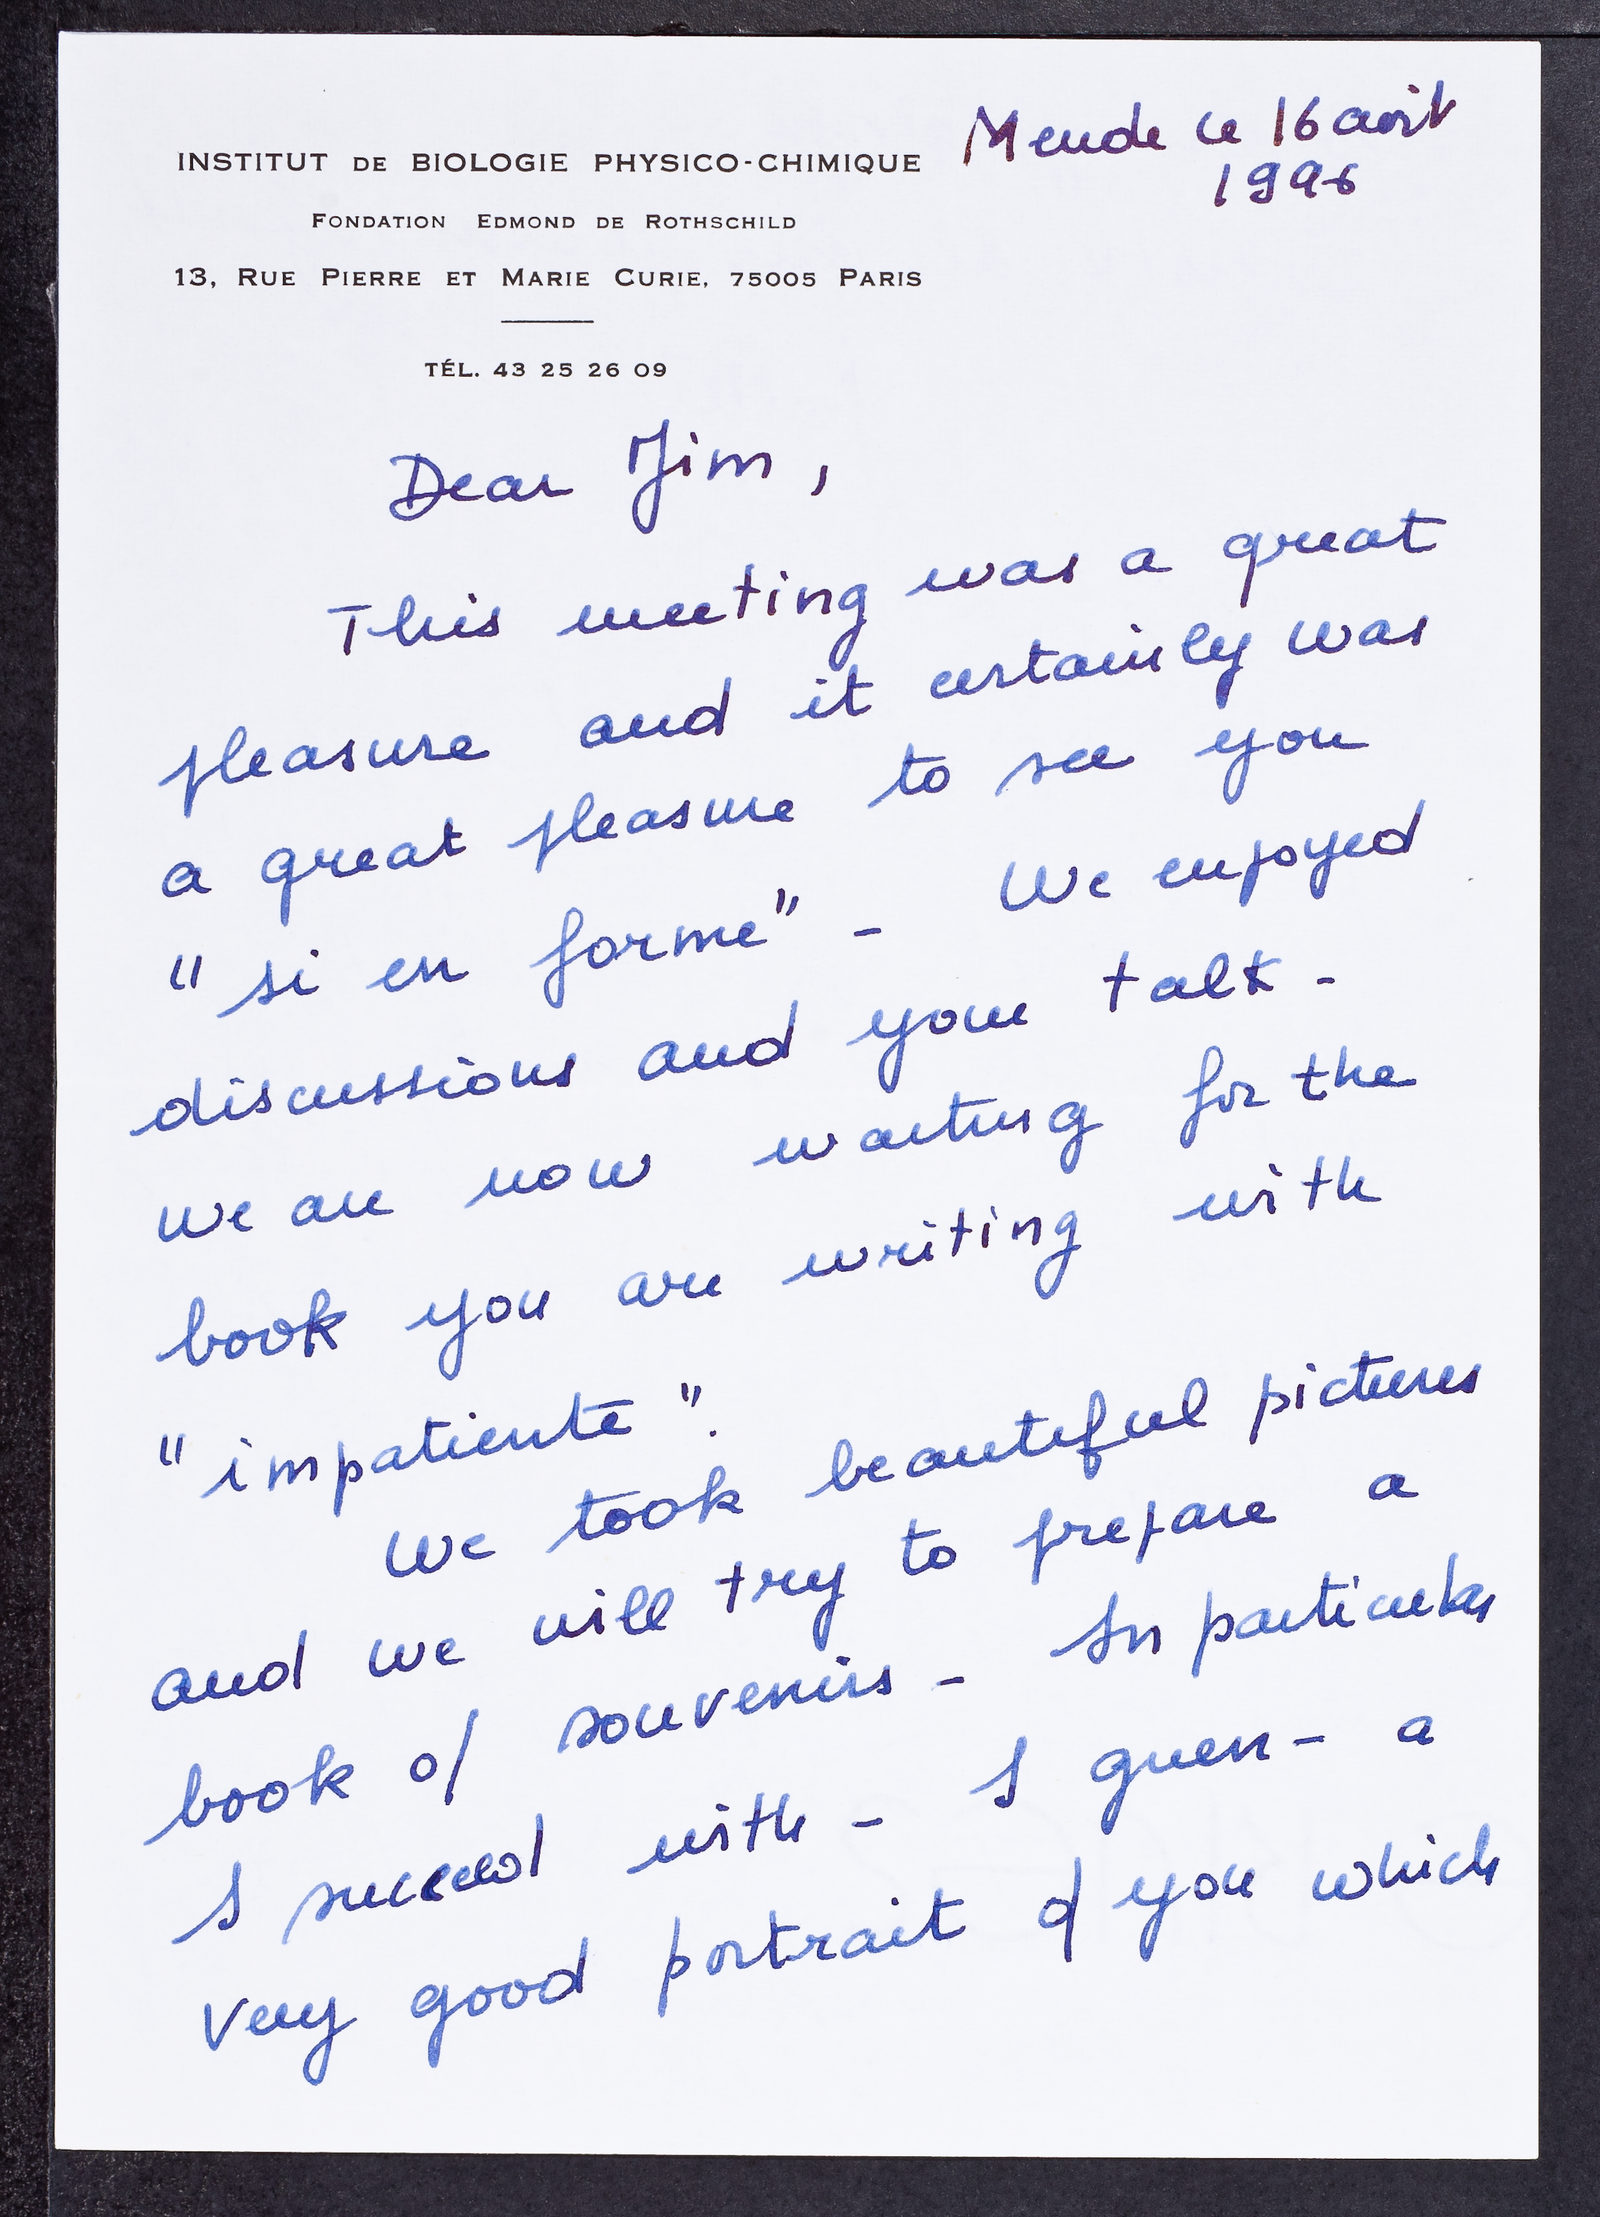 Mende le 16 août
1996
INSTITUT DE BIOLOGIE PHYSICO-CHIMIQUE
FONDATION EDMOND DE ROTHSCHILD
13, RUE PIERRE ET MARIE CURIE, 75005 PARIS
TÉL. 43 25 26 09
Dear Jim,
This meeting was a great
pleasure and it certainly was
a great pleasure to see you
"si en forme" - We enjoyed
discussions and your talk -
We are now waiting for the
book you are writing with
"impatiente".
We took beautiful pictures
and we will try to prepare a
book of souvenirs - In particular
I succeed with - I guess - a
very good portrait of you which